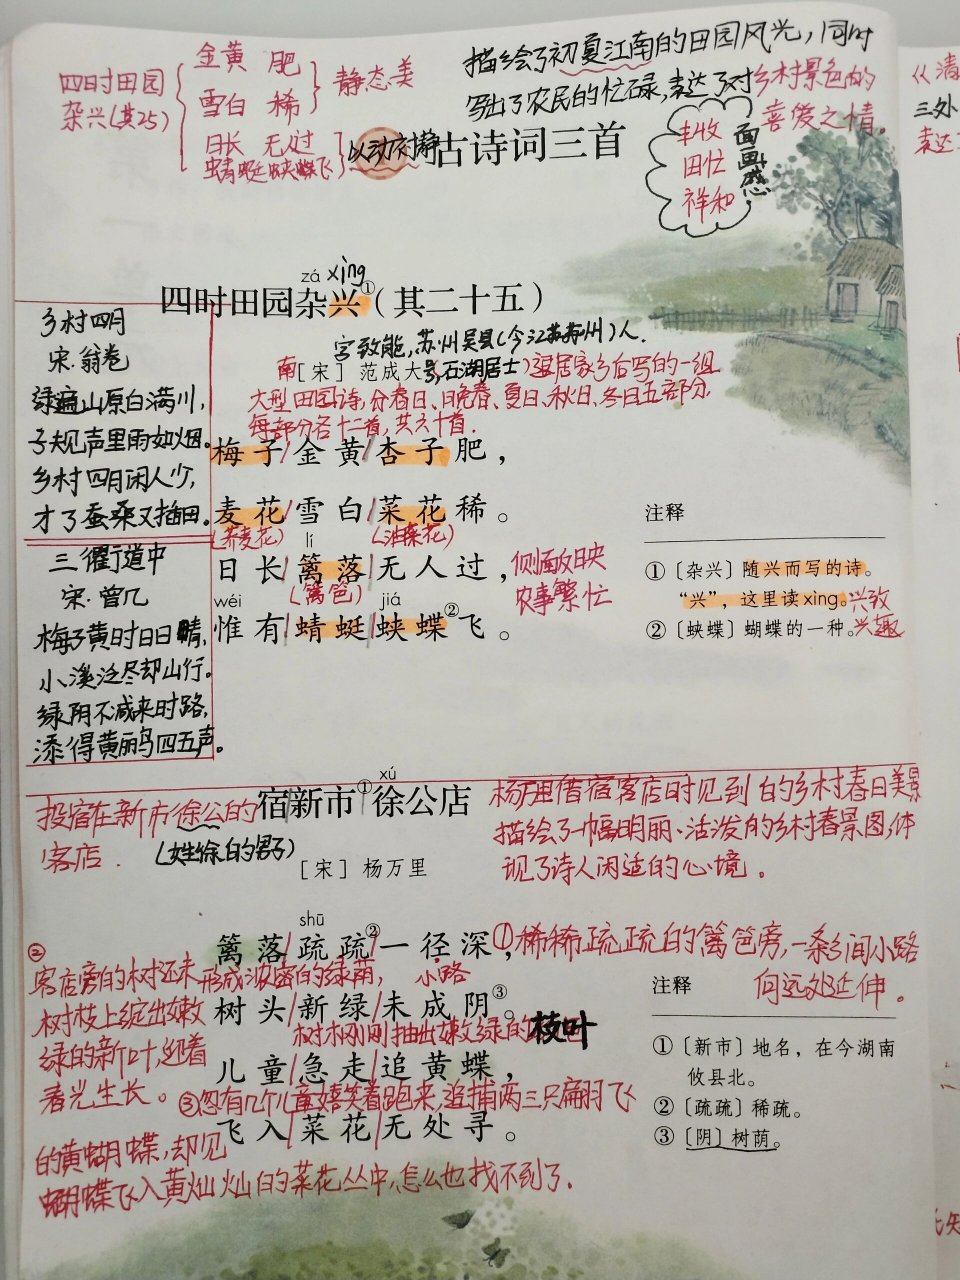 四时田园
杂兴(其25)
金黄 肥
雪白 稀
静态美
日长 无人过
蜻蜓蛱蝶飞
以动衬静
描绘了初夏江南的田园风光,同时
写出了农民的忙碌,表达了对乡村景色的
喜爱之情。
丰收
田忙
祥和
画面感
古诗词三首
zá xìng
四时田园杂兴①(其二十五)
字致能,苏州吴县(今江苏苏州)人.
南[宋]范成大号,石湖居士)退居家乡后写的一组
大型田园诗,分春日、晚春、夏日、秋日、冬日五部分,
每部分各十二首,共六十首.
梅子/金黄/杏子肥,
麦花/雪白/菜花稀。
(荞麦花) (油菜花)
lí
日长/篱落/无人过,
(篱笆)
侧面反映
农事繁忙
wéi jiá
惟有/蜻蜓/蛱蝶②飞。
注释
①〔杂兴〕随兴而写的诗。
“兴”,这里读xìng。兴致
②〔蛱蝶〕蝴蝶的一种。兴趣
乡村四月
宋.翁卷
绿遍山原白满川,
子规声里雨如烟。
乡村四月闲人少,
才了蚕桑又插田。
三衢道中
宋.曾几
梅子黄时日日晴,
小溪泛尽却山行.
绿阴不减来时路,
添得黄鹂鸣四五声。
xú
宿新市①徐公店
投宿在新市徐公的
客店.
(姓徐的男子)
[宋]杨万里
杨万里借宿客店时见到的乡村春日美景
描绘了一幅明丽、活泼的乡村春景图,体
现了诗人闲适的心境。
shū
篱落/疏疏②/一径深,
小路
①稀稀疏疏的篱笆旁,一条乡间小路
向远处延伸。
树头/新绿/未成阴③。
树木刚刚抽出嫩绿的枝叶
儿童/急走/追黄蝶,
飞入/菜花/无处寻。
②
客店旁的树还未形成浓密的绿荫,
树枝上绽出嫩
绿的新叶,迎着
春光生长。
③忽有几个儿童嬉笑着跑来,追捕两三只扇羽飞
的黄蝴蝶,却见
蝴蝶飞入黄灿灿的菜花丛中,怎么也找不到了.
注释
①〔新市〕地名,在今湖南
攸县北。
②〔疏疏〕稀疏。
③〔阴〕树荫。
《清
三处
表达